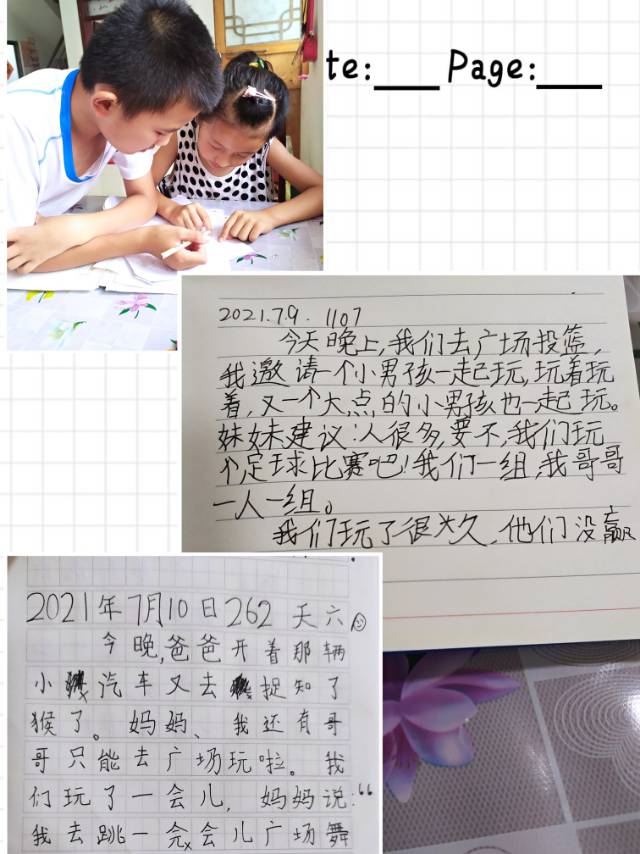 te:___ Page:___
2021.7.9. 1107
今天晚上,我们去广场投篮,
我邀请一个小男孩一起玩,玩着玩
着,又一个大点的小男孩也一起玩。
妹妹建议:人很多,要不,我们玩
个足球比赛吧!我们一组,我哥哥
一人一组。
我们玩了很久,他们没赢
2021年7月10日262天六
今晚,爸爸开着那辆
小汽车又去捉知了
猴了。妈妈、我还有哥
哥只能去广场玩啦。我
们玩了一会儿,妈妈说:“
我去跳一会儿广场舞